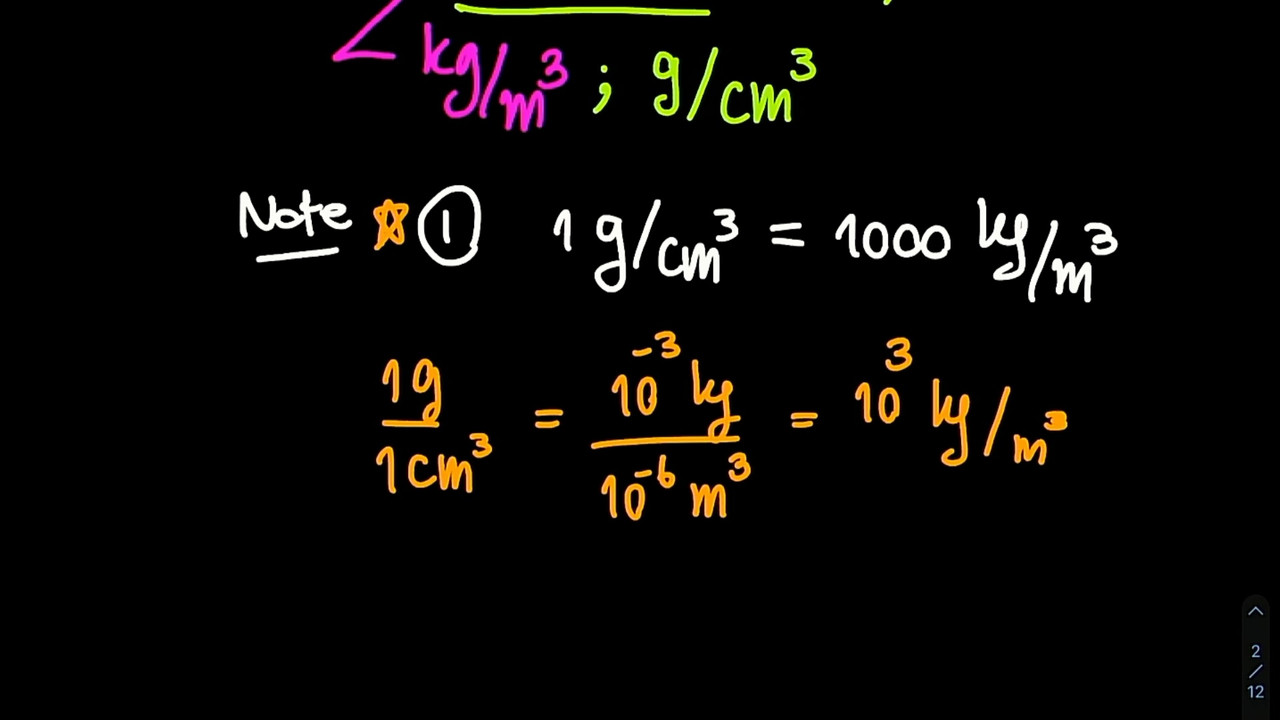 kg/m³ ; g/cm³
Note ☆ ① 1 g/cm³ = 1000 kg/m³
1g / 1cm³ = 10⁻³ kg / 10⁻⁶ m³ = 10³ kg/m³
2
/
12